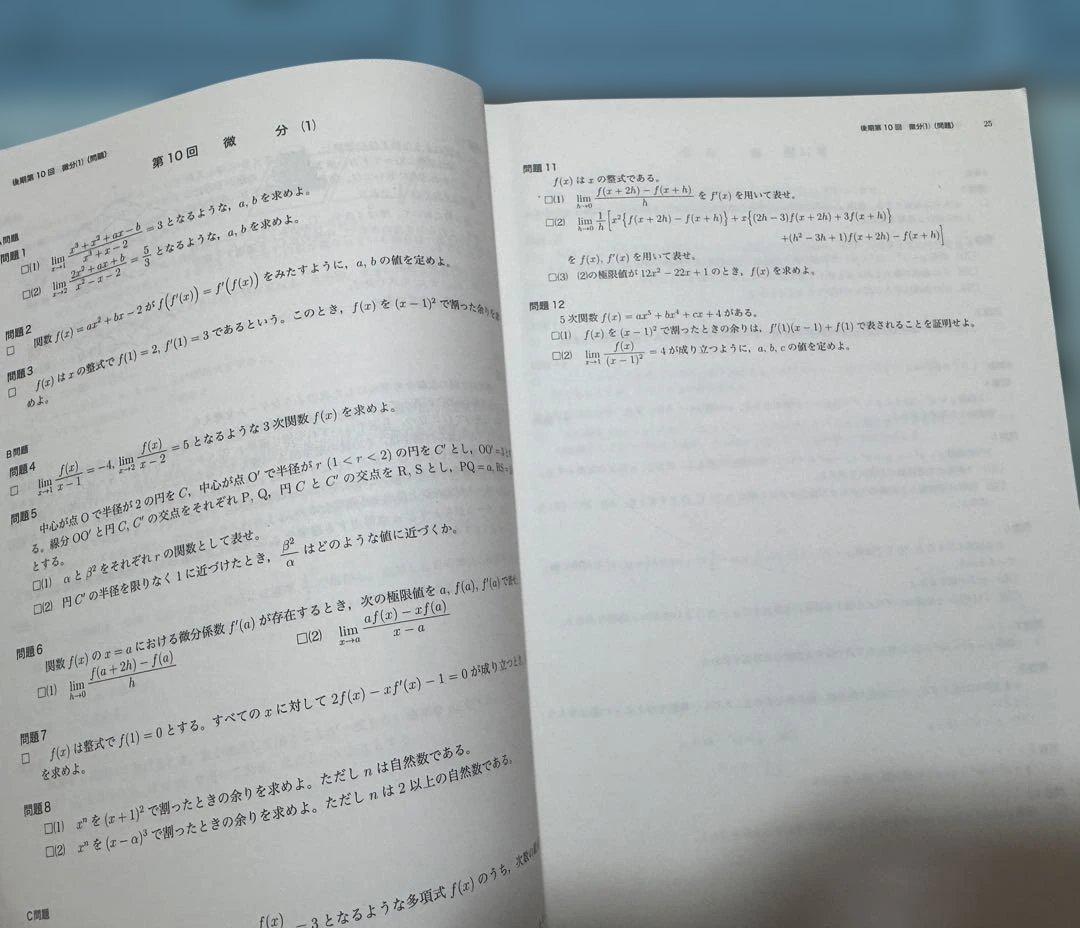 後期第10回 微分(1) (問題)
第10回 微 分 (1)
問題
問題1
□(1) lim_{x→1} (x³+x²+ax−b)/(x³+x−2) = 3 となるような, a, b を求めよ。
□(2) lim_{x→2} (2x²+ax+b)/(x²−x−2) = 5/3 となるような, a, b を求めよ。
問題2
□ 関数 f(x) = ax²+bx−2 が f(f′(x)) = f′(f(x)) をみたすように, a, b の値を定めよ。
問題3
□ f(x) は x の整式で f(1) = 2, f′(1) = 3 であるという。このとき, f(x) を (x−1)² で割った余りを
めよ。
B問題
問題4
□ lim_{x→1} f(x)/(x−1) = −4, lim_{x→2} f(x)/(x−2) = 5 となるような 3 次関数 f(x) を求めよ。
問題5
中心が点 O で半径が 2 の円を C, 中心が点 O′ で半径が r (1 < r < 2) の円を C′ とし, OO′
る。線分 OO′ と円 C, C′ の交点をそれぞれ P, Q, 円 C と C′ の交点を R, S とし, PQ = α,
とする。
□(1) α と β² をそれぞれ r の関数として表せ。
□(2) 円 C′ の半径を限りなく 1 に近づけたとき, β²/α はどのような値に近づくか。
問題6
関数 f(x) の x = a における微分係数 f′(a) が存在するとき, 次の極限値を a, f(a), f′(a) で表せ
□(1) lim_{h→0} (f(a+2h)−f(a))/h □(2) lim_{x→a} (af(x)−xf(a))/(x−a)
問題7
□ f(x) は整式で f(1) = 0 とする。すべての x に対して 2f(x)−xf′(x)−1 = 0 が成り立つとき
を求めよ。
問題8
□(1) xⁿ を (x+1)² で割ったときの余りを求めよ。ただし n は自然数である。
□(2) xⁿ を (x−α)³ で割ったときの余りを求めよ。ただし n は 2 以上の自然数である。
C問題
f(x) − 3 となるような多項式 f(x) のうち, 次数の
後期第10回 微分(1) (問題) 25
問題11
f(x) は x の整式である。
□(1) lim_{h→0} (f(x+2h)−f(x+h))/h を f′(x) を用いて表せ。
□(2) lim_{h→0} 1/h [x²{f(x+2h)−f(x+h)}+x{(2h−3)f(x+2h)+3f(x+h)}
+(h²−3h+1)f(x+2h)−f(x+h)]
を f(x), f′(x) を用いて表せ。
□(3) (2)の極限値が 12x²−22x+1 のとき, f(x) を求めよ。
問題12
5 次関数 f(x) = ax⁵+bx⁴+cx+4 がある。
□(1) f(x) を (x−1)² で割ったときの余りは, f′(1)(x−1)+f(1) で表されることを証明せよ。
□(2) lim_{x→1} f(x)/(x−1)² = 4 が成り立つように, a, b, c の値を定めよ。